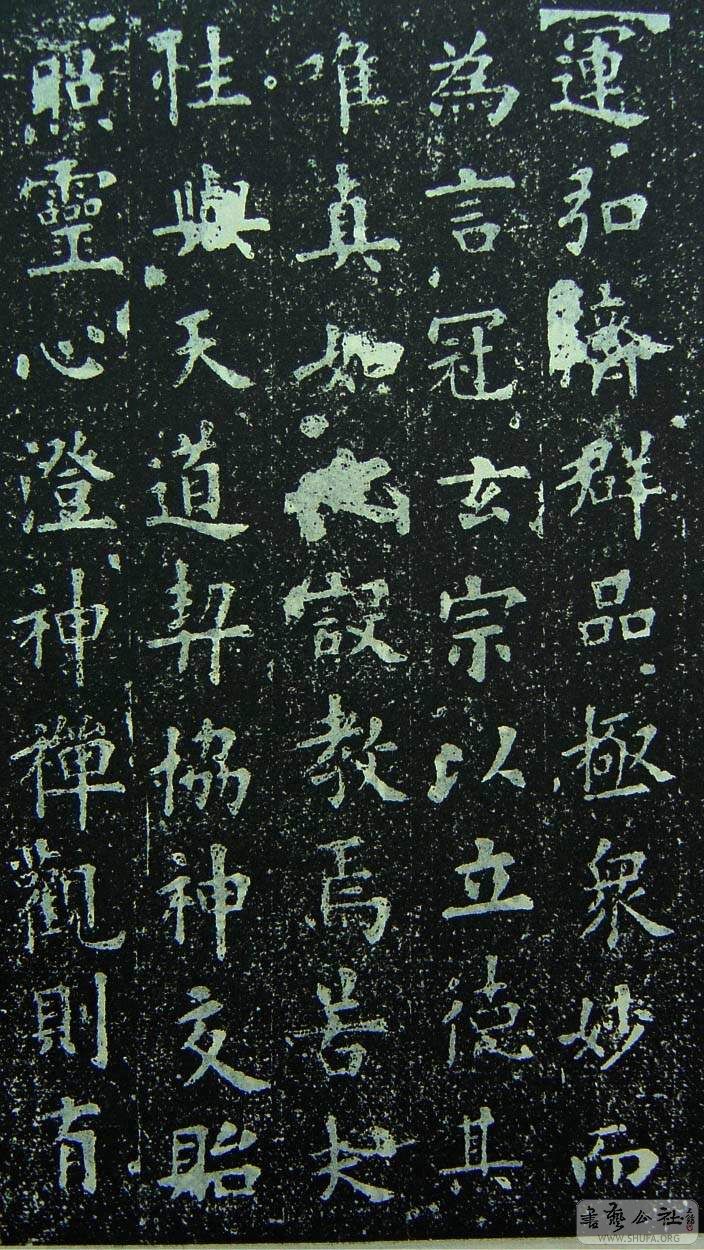 運弘濟群品極衆妙而
為言冠玄宗以立德其
唯真如設教焉若夫
性與天道契協神交貽
照靈心澄神禪觀則有
书艺公社
WWW.SHUFA.ORG